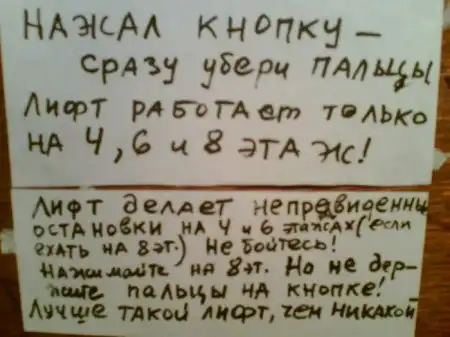 НАЖАЛ КНОПКУ —
СРАЗУ убери ПАЛЬЦЫ
ЛИФТ РАБОТАЕТ ТОЛЬКО
НА 4, 6 и 8 ЭТАЖ!
ЛИФТ ДЕЛАЕТ НЕПРЕДВИДЕННЫ
ОСТАНОВКИ НА 4 и 6 этажах (если
ЕХАТЬ НА 8 эт.) Не бойтесь!
Нажимайте на 8 эт. Но не дер-
жите пальцы на кнопке!
Лучше такой лифт, чем никакой